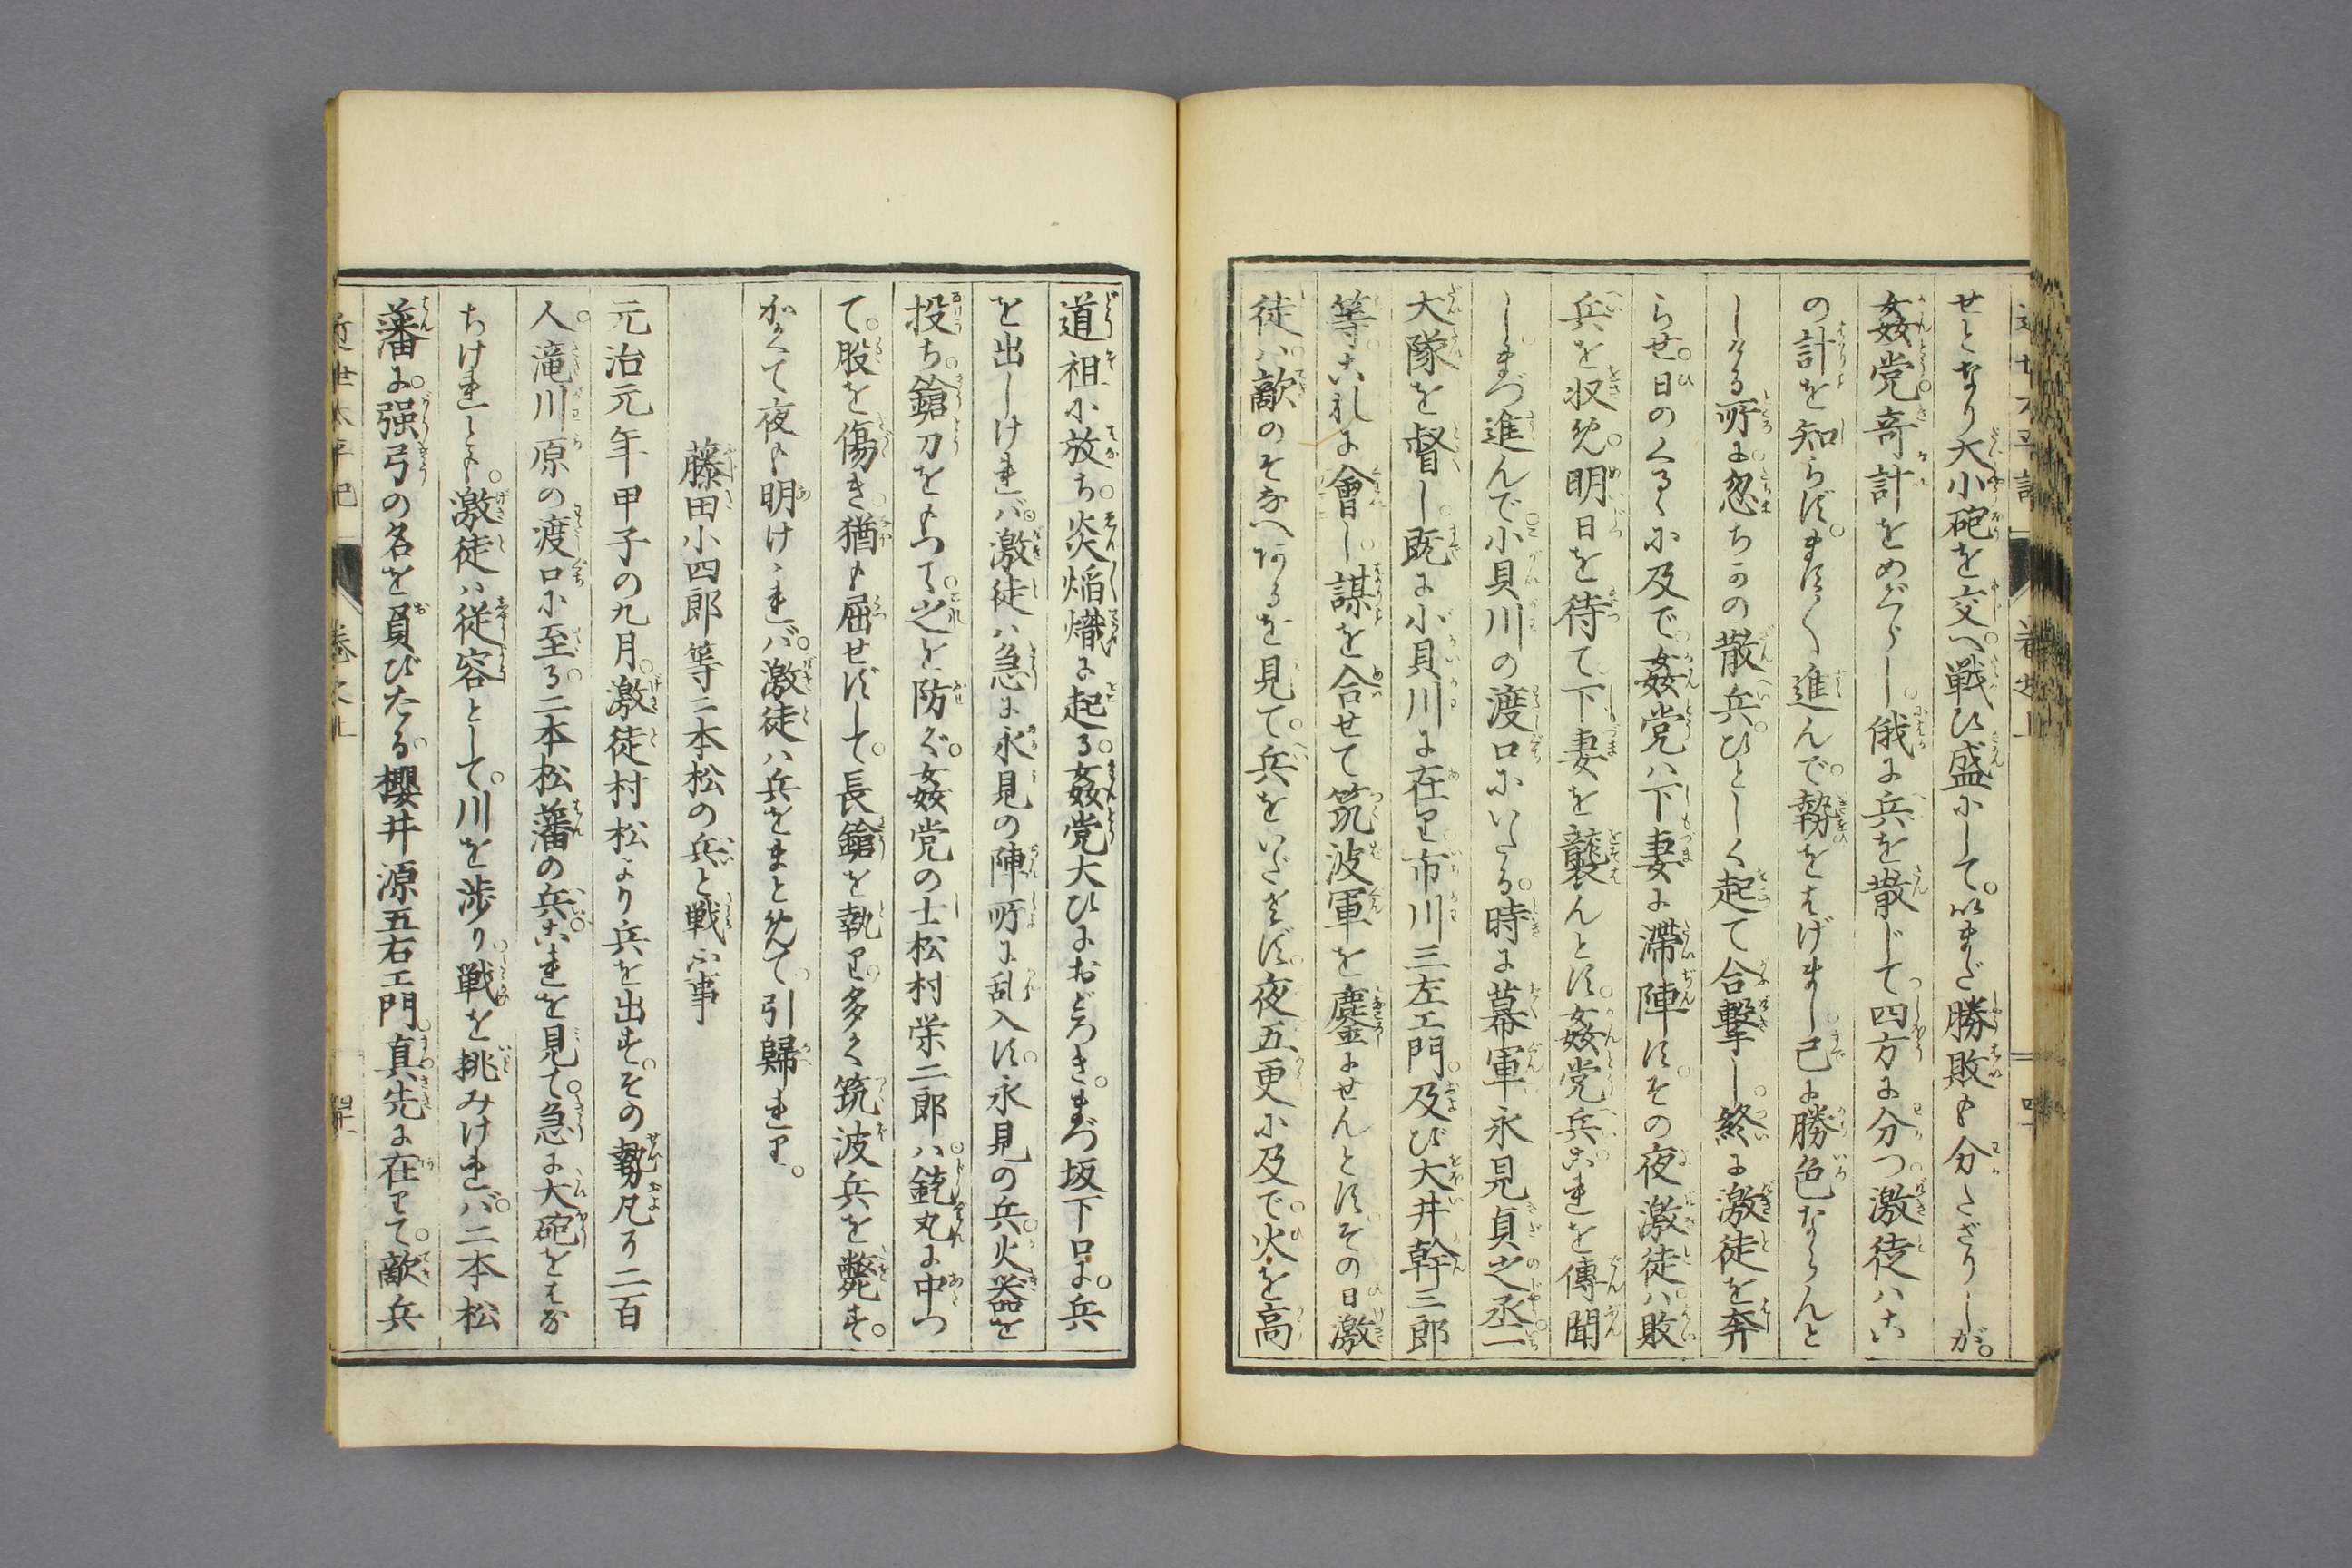 せとなり大小砲を交へ。戦ひ盛にして。いまだ勝敗も分たざりしが。
姦党。奇計をめぐらし。俄に兵を散じて四方に分つ。激徒ハこ
の計を知らず。ます〱進んで。勢をはげまし。已に勝色ならんと
しける所に。忽ちかの散兵。ひとしく起て合撃し。終に激徒を奔
らせ。日のくるゝに及で。姦党ハ下妻に滞陣す。その夜激徒ハ。敗
兵を収め。明日を待て。下妻を襲んとす。姦党兵。これを傳聞
し。まづ進んで。小貝川の渡口にいたる。時に幕軍永見貞之丞。一
大隊を督し。既に小貝川に在り。市川三左エ門。及び大井幹三郎
等。これに會し。謀を合せて筑波軍を鏖にせんとす。その日激
徒ハ。敵のそなへあるを見て。兵をいださず。夜五更に及で。火を高
道祖に放ち。炎焔熾に起る。姦党大ひにおどろき。まづ坂下口に。兵
を出しけれバ。激徒ハ急に永見の陣所に乱入す。永見の兵。火器を
投ち。鎗刀をもつて。之を防ぐ。姦党の士松村栄二郎ハ。銃丸に中つ
て。股を傷き。猶も屈せずして。長鎗を執り。多く筑波兵を斃す。
かくて夜も明けゝれバ。激徒ハ兵をまとめて。引歸れり。
藤田小四郎等二本松の兵と戦ふ事
元治元年甲子の九月。激徒村松より兵を出す。その勢凡そ二百
人。滝川原の渡口に至る。二本松藩の兵。これを見て。急に大砲をはな
ちけれども。激徒ハ従容として。川を渉り。戦を挑みけれバ。二本松
藩に。强弓の名を負びたる。櫻井源五右エ門。真先に在りて。敵兵
近世太平記